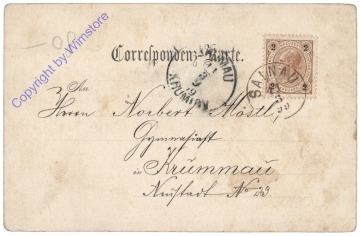 Correspondenz-Karte.
2 2
2 2
SALNAU
KRUMAU
KRUMLOV
An
Herrn Norbert Möstl,
Gymnasiast
in
Krummau
Neustadt No 33.
Copyright by Wimstore